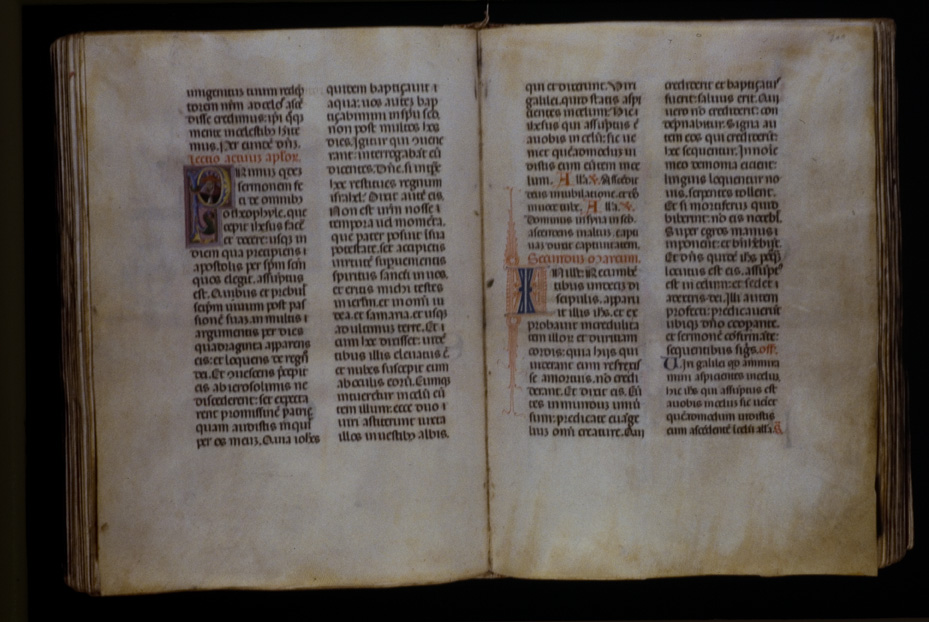 unigenitus tuum redēp
torem nrm ad celos asce
disse credimus: ipi q̄q
mente in celestib; hite
mus. Per eundē dn̄z.
Lectio actuū aplor.
Rimum qdez
sermonem fe
ci de omnib;
o theophyle, que
cepit ihesus facē
et docere: usq; in
diem qua precipiens
apostolis per spm scm
quos elegit, assuptus
est. Quibus et prebuit
seipm uiuum post pas
sionē suaz in multis
argumentis per dies
quadraginta apparens
eis: et loquens de regn
dei. Et ouescens p̄cepit
eis ab ierosolimis ne
discederēt: sed expecta
rent promissionē patris
quam audistis inquit
per os meuz. Quia iohes
quidem baptizauit
aqua: uos autez bap
tizabimini in spu sco
non post multos hos
dies. Igitur qui ouene
rant: interrogabāt eū
dicentes. Dne, si in tpe
hoc restitues regnum
israhel? Dixit autē eis.
Non est urm nosse
tempora ud momēta.
que pater posuit i sua
potestate. set accipietis
uirtutē supuenientis
spiritus sancti in uos.
et eritis michi testes
in ierlm. et in omni iu
dea. et samaria. et usq;
ad ultimum terre. Et
cum hec dixisset: uidē
tibus illis eleuatus ē
et nubes suscepit eum
ab oculis eorū. Cumq;
intuerētur in celū eū
tem illum: ecce duo
uiri astiterunt iuxta
illos in uestib; albis.
qui et dixerunt. Viri
galilei, quid statis aspi
cientes in celum: Hic
ihesus qui assuptus ē
a uobis in celū: sic ue
niet quēadmodū ui
distis eum eūtem in ce
lum. Alla. ℣. Ascēdit
deus in iubilatione. et do
minus in uoce tube. Alla. ℣.
Dominus in syna in sco.
ascendens in altum. capti
uam duxit captiuitatem.
Secundum Marcum.
In illo t. Recumbē
tibus undecim di
scipulis. apparu
it illis ihs. et ex
probauit incredulita
tem illor et duritiam
cordis: quia hijs qui
uiderant eum resurrexis
se a mortuis, nō credi
derant. Et dixit eis. Eū
tes in mundum uniu
sum: predicate euāge
lium omi creature. Qui
crediderit et baptizatus
fuerit: saluus erit. Qui
uero nō crediderit: con
depnabitur. Signa au
tem eos qui crediderint:
hec sequentur. In noīe
meo demonia eicient:
linguis loquentur no
uis. serpentes tollent.
Et si mortiferū quid
biberint: nō eis nocebit.
Super egros manus
inponent: et bn̄ habebūt.
Et dn̄s quidē ihs postq̄
locutus est eis. assupt
est in celum: et sedet a
dextris dei. Illi autem
profecti: predicauerūt
ubiq; dn̄o coopante.
et sermonē cōfirmāte:
sequentibus sig̅s. off.
Viri galilei qd admira
mini aspicientes in celū.
hic ihs qui assuptus est
a uobis in celū: sic ueniet
quēadmodum uidistis
eum ascēdentē i celū alla.